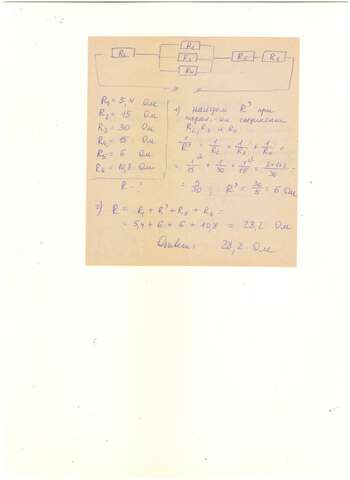 R1
R2
R3
R4
R5
R6
R1 = 5,4 Ом
R2 = 15 Ом
R3 = 30 Ом
R4 = 15 Ом
R5 = 6 Ом
R6 = 10,8 Ом
R - ?
1) найдем R' при
парал-ом соединении
R2, R3 и R4
1/R' = 1/R2 + 1/R3 + 1/R4 =
= 1/15 + 1/30 + 1/15 = 2+1+2/30
= 5/30; R' = 30/5 = 6 Ом
2) R = R1 + R' + R5 + R6 =
= 5,4 + 6 + 6 + 10,8 = 28,2 Ом
Ответ: 28,2 Ом